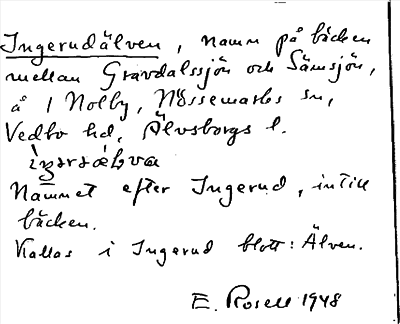 Ingerudälven, namn på bäcken
mellan Gravdalssjön och Sämsjön,
å 1 Nolby, Nössemarks sn,
Vedbo hd, Älvsborgs l.
Namnet efter Ingerud, intill
bäcken.
Kallas i Ingerud blott: Älven.
E. Rosell 1948